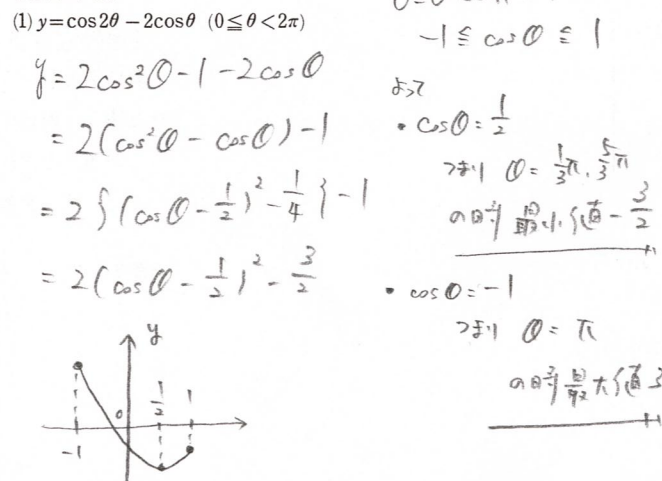 (1) y=cos2θ−2cosθ (0≦θ<2π)
y = 2cos²θ-1-2cosθ
= 2(cos²θ - cosθ)-1
= 2{(cosθ-1/2)²-1/4}-1
= 2(cosθ-1/2)²-3/2
y
0
1/2
1
-1
-1≦cosθ≦1
よって
・cosθ=1/2
つまり θ=1/3π, 5/3π
の時 最小値-3/2
・cosθ=-1
つまり θ=π
の時 最大値3